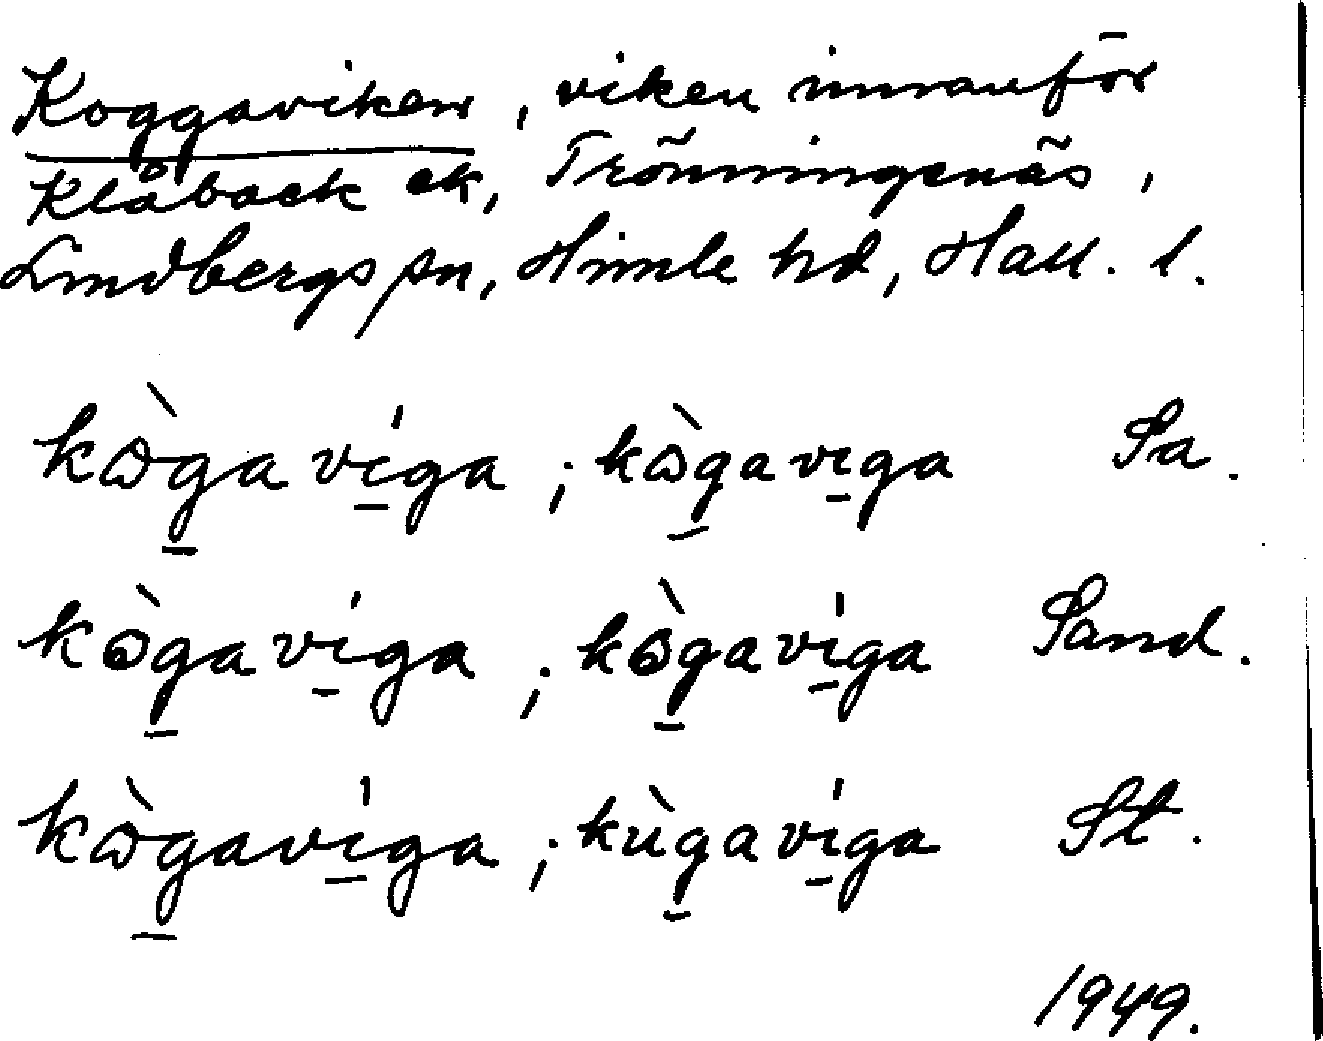 Koggaviken, viken innanför
Klåback ek, Trönningenäs,
Lindbergs sn, Himle hd, Hall. l.
kɷ̀g̱aví̱ga; kɷ̀g̱avi̱ga Sa.
kɷ̀g̱aví̱ga; kɷ̀g̱aví̱ga Sand.
kɷ̀g̱aví̱ga; kùg̱aví̱ga St.
1949.